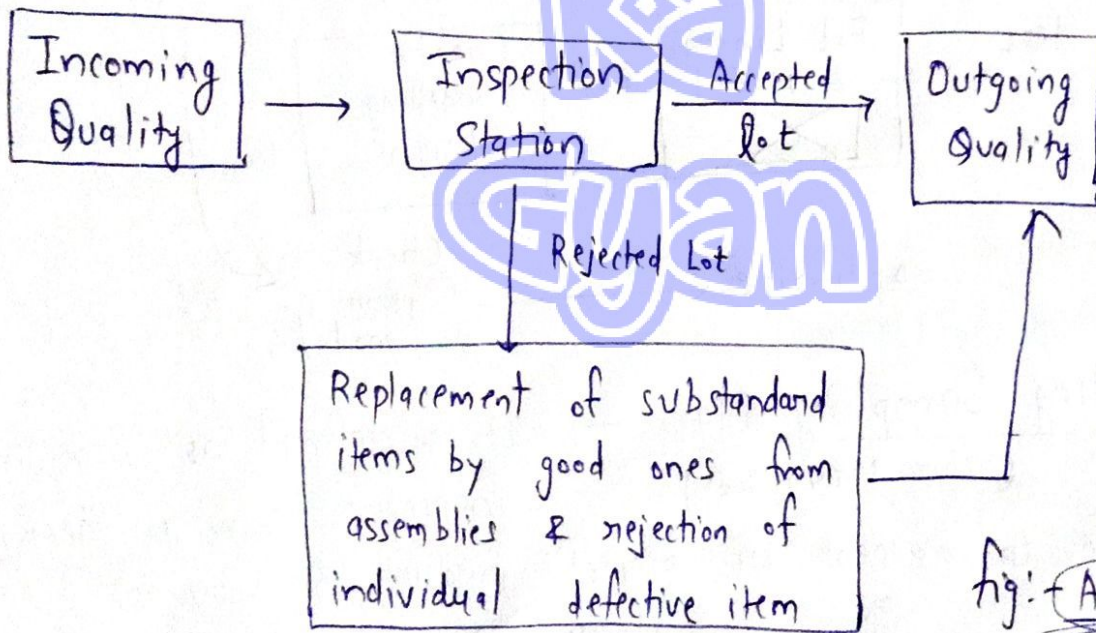 Incoming
Quality
Inspection
Station
Accepted
lot
Outgoing
Quality
Rejected Lot
Replacement of substandard
items by good ones from
assemblies & rejection of
individual defective item
fig:- A
Ka
Gyan